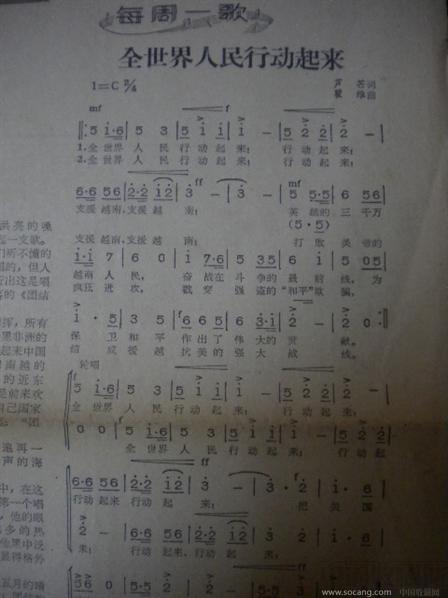 每周一歌
全世界人民行动起来
1=C 2/4
芦芒词
瞿维曲
mf f
5 i·6 5 3 5 i i i - 5 2 2 2 -
1.全世界 人民 行动起来； 行动起来；
2.全世界 人民 行动起来； 行动起来；
ff mf
6·6 56 2·2 i2 3 - 3 - 5 5·5 6 56
支援越南，支援越南； 英雄的三千万
(5·5)
支援越南，支援越南； 打败美帝的
i·i 7 6 0 i 7·6 5 3·5 i 6 5 05
越南人民， 奋战在斗争的最前线，为
疯狂进攻， 戳穿强盗的“和平”欺骗，
i · 5 3 5 6 6 5 6 3·i 2 - 2 0
保卫和平作出了伟大的贡献。
结成援越抗美的强大战线。
轮唱
f
5 i·6 5 3 5 i i i - 5 2 2 2 -
全世界 人民 行动起来； 行动起来；
0 0 5 i·6 5 3 5 i i i - 5 2 2
全世界 人民 行动起来； 行动起
ff f
6·6 56 2·2 i2 3 - 3 · 2 i · 6
行动起来 行动起来； 把美国
ff
2 - 6·6 56 2·2 i2 3 -
来； 行动起来，行动起来；
洪亮的嗓
起一支歌。
们所不懂的
国的，但人
指出这是唱
的《团结
挥，所有
果非洲的
起来中国
南越的
的近东
是前来欢
自己国家
“团
追再一
声的海
中，在这
第一个唱
，他的眼
多的热
他黑中泛
显得格外
五月的晴
www.socang.com 中国收藏网